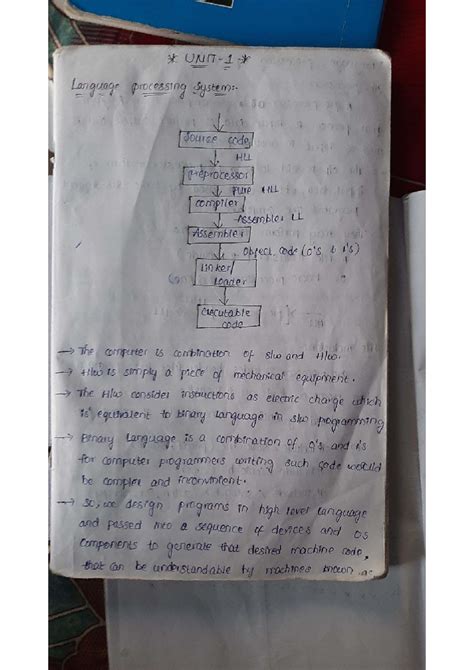 * UNIT-1 *
Language processing System:-
Source code
HLL
preprocessor
Pure HLL
compiler
Assembler LL
Assembler
Object code (0's & 1's)
Linker/
Loader
Executable
code
→ The computer is combination of S/w and H/w.
→ H/w is simply a piece of mechanical equipment.
→ The H/w consider instructions as electric charge which
is equivalent to binary language in s/w programming
→ Binary Language is a combination of 0's and 1's
for computer programmers writing such code would
be complex and inconvinent.
→ So, we design programs in high level language
and passed into a sequence of devices and OS
components to generate that desired machine code,
that can be understandable by machines known as